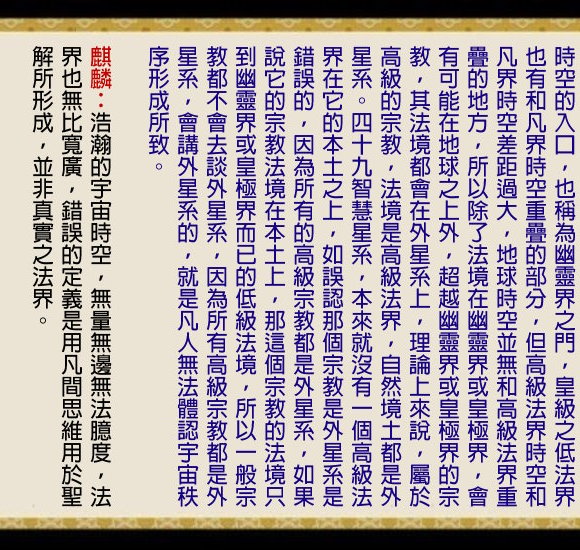 時空的入口，也稱為幽靈界之門，皇級之低法界
也有和凡界時空重疊的部分，但高級法界時空和
凡界時空差距過大，地球時空並無和高級法界重
疊的地方，所以除了法境在幽靈界或皇極界，會
有可能在地球之上外，超越幽靈界或皇極界的宗
教，其法境都會在外星系上，理論上來說，屬於
高級的宗教，法境是高級法界，自然境土都是外
星系。四十九智慧星系，本來就沒有一個高級法
界在它的本土之上，如誤認那個宗教是外星系是
錯誤的，因為所有的高級宗教都是外星系，如果
說它的宗教法境在本土上，那這個宗教的法境只
到幽靈界或皇極界而已的低級法境，所以一般宗
教都不會去談外星系，因為所有高級宗教都是外
星系，會講外星系的，就是凡人無法體認宇宙秩
序形成所致。
麒麟：浩瀚的宇宙時空，無量無邊無法臆度，法
界也無比寬廣，錯誤的定義是用凡間思維用於聖
解所形成，並非真實之法界。